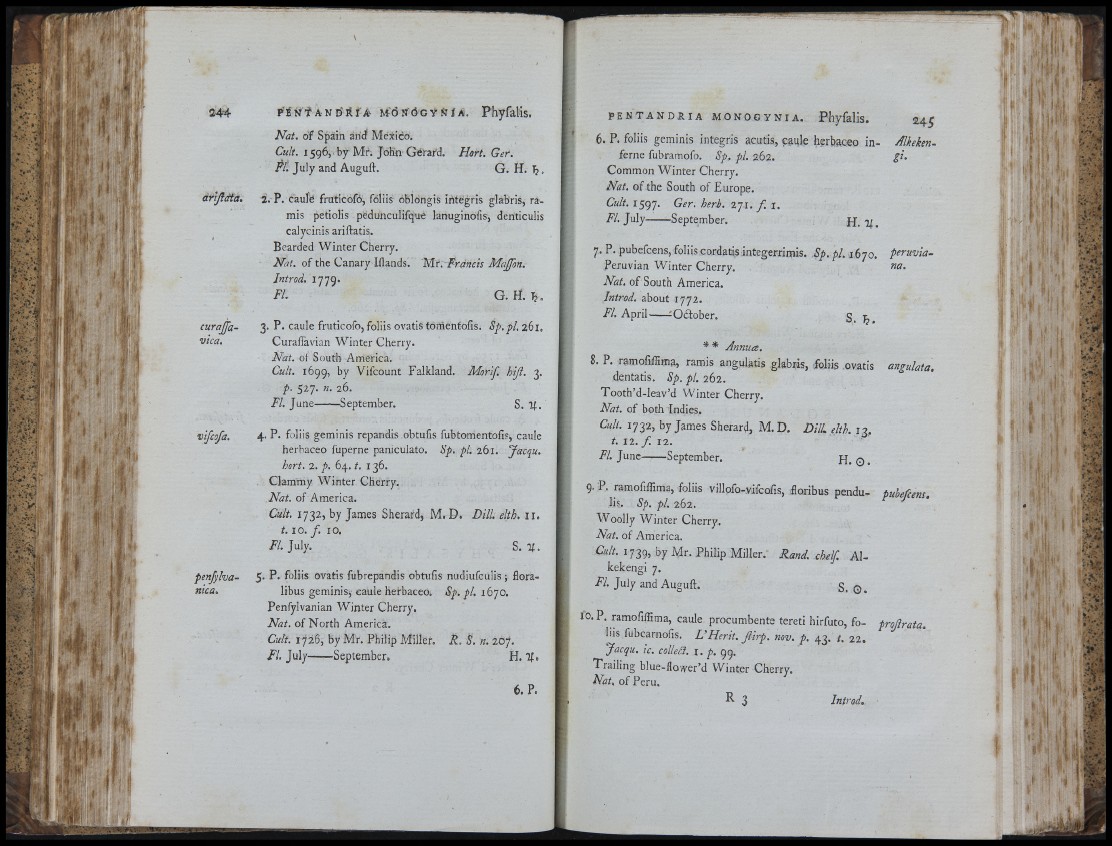 244 PENTANDRIA MONOGYNIA. Phyſalis.
Nat. of Spain and Mexico.
Cult. 1596, by Mr. John Gerard. Hort. Ger.
Fl. July and Auguſt. G. H. ♄.
ariſtata. 2. P. caule fruticoſo, foliis oblongis integris glabris, ra-
mis petiolis pedunculiſque lanuginoſis, denticulis
calycinis ariſtatis.
Bearded Winter Cherry.
Nat. of the Canary Iſlands. Mr. Francis Maſſon.
Introd. 1779.
Fl. G. H. ♄.
curaſſa- 3. P. caule fruticoſo, foliis ovatis tomentoſis. Sp. pl. 261.
vica. Curaſſavian Winter Cherry.
Nat. of South America.
Cult. 1699, by Viſcount Falkland. Moriſ. hiſt. 3.
p. 527. n. 26.
Fl. June——September. S. ♃.
viſcoſa. 4. P. foliis geminis repandis obtuſis ſubtomentoſis, caule
herbaceo ſuperne paniculato. Sp. pl. 261. Jacqu.
hort. 2. p. 64. t. 136.
Clammy Winter Cherry.
Nat. of America.
Cult. 1732, by James Sherard, M. D. Dill. elth. 11.
t. 10. f. 10.
Fl. July. S. ♃.
penſylva- 5. P. foliis ovatis ſubrepandis obtuſis nudiuſculis; flora-
nica. libus geminis, caule herbaceo. Sp. pl. 1670.
Penſylvanian Winter Cherry.
Nat. of North America.
Cult. 1726, by Mr. Philip Miller. R. S. n. 207.
Fl. July——September. H. ♃.
6. P.
PENTANDRIA MONOGYNIA. Phyſalis. 245
6. P. foliis geminis integris acutis, caule herbaceo in- Alkeken-
ferne ſubramoſo. Sp. pl. 262. gi.
Common Winter Cherry.
Nat. of the South of Europe.
Cult. 1597. Ger. herb. 271. f. 1.
Fl. July——September. H. ♃.
7. P. pubeſcens, foliis cordatis integerrimis. Sp. pl. 1670. peruvia-
Peruvian Winter Cherry. na.
Nat. of South America.
Introd. about 1772.
Fl. April——October. S. ♄.
** Annuæ.
8. P. ramoſiſſima, ramis angulatis glabris, foliis ovatis angulata.
dentatis. Sp. pl. 262.
Tooth'd-leav'd Winter Cherry.
Nat. of both Indies.
Cult. 1732, by James Sherard, M. D. Dill. elth. 13.
t. 12. f. 12.
Fl. June——September. H. ☉.
9. P. ramoſiſſima, foliis villoſo-viſcoſis, floribus pendu- pubeſcens.
lis. Sp. pl. 262.
Woolly Winter Cherry.
Nat. of America.
Cult. 1739, by Mr. Philip Miller. Rand. chelſ. Al-
kekengi 7.
Fl. July and Auguſt. S. ☉.
10. P. ramoſiſſima, caule procumbente tereti hirſuto, fo- proſtrata.
liis ſubcarnoſis. L'Herit. ſtirp. nov. p. 43. t. 22.
Jacqu. ic. collect. 1. p. 99.
Trailing blue-flower'd Winter Cherry.
Nat. of Peru.
R 3 Introd.